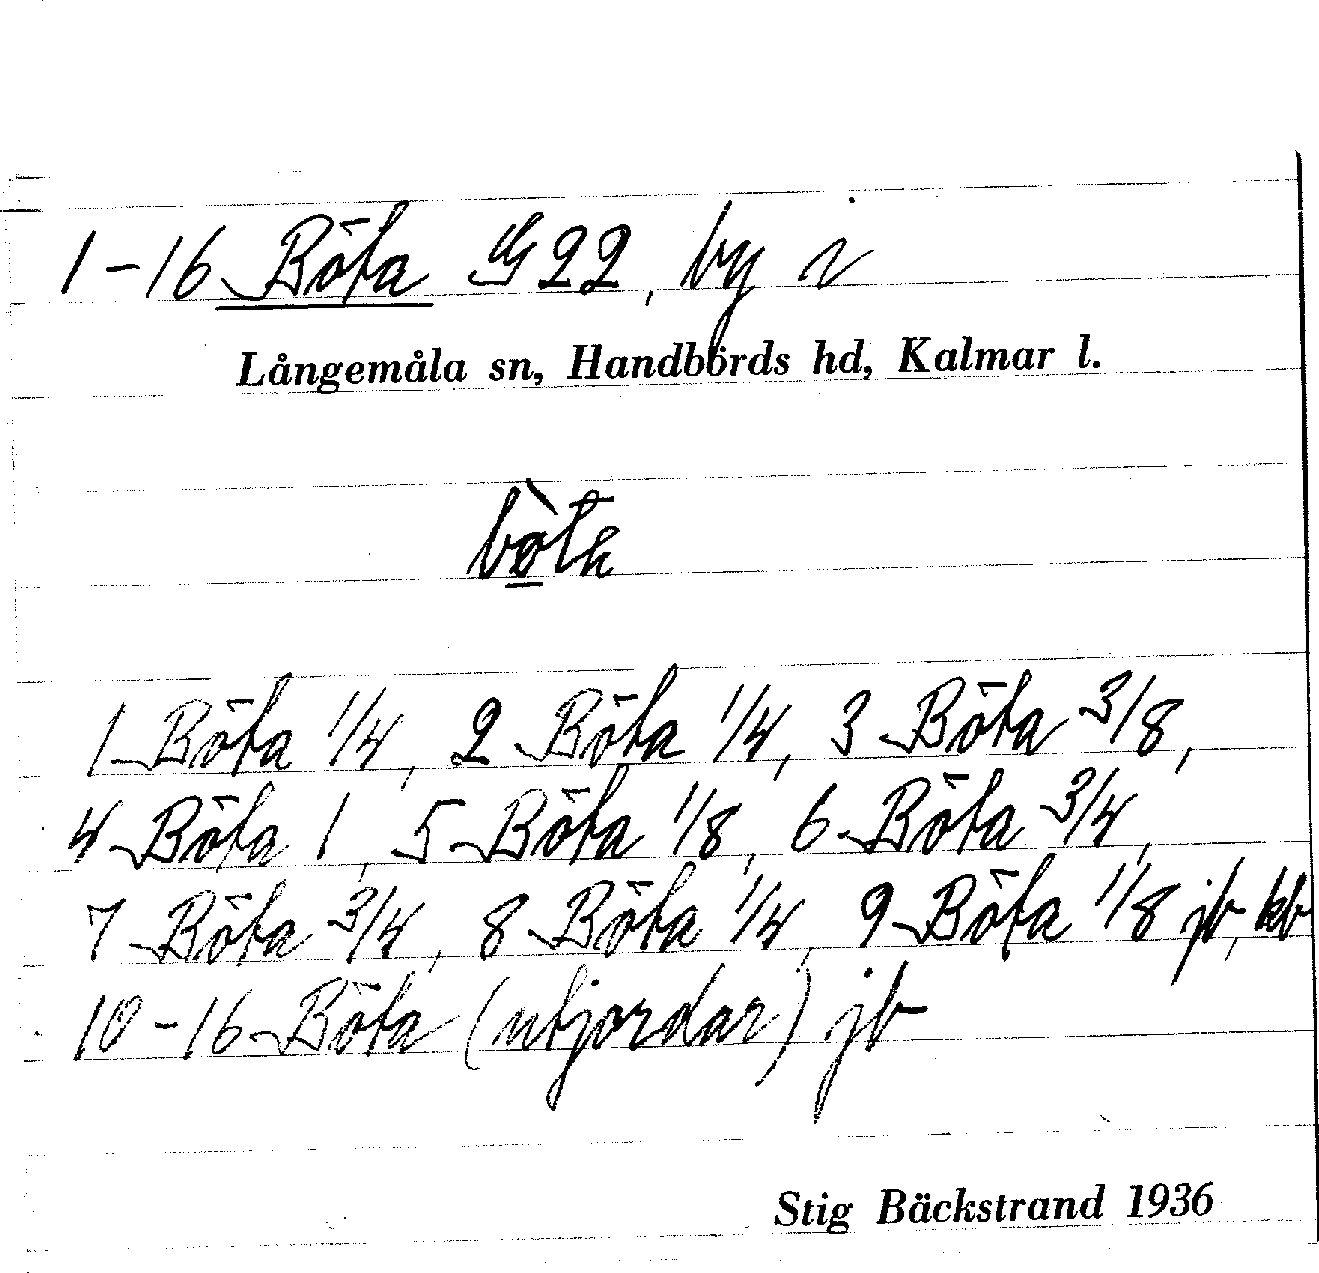 1-16 Böta G 22, by i
Långemåla sn, Handbörds hd, Kalmar l.
1 Böta 1/4, 2 Böta 1/4, 3 Böta 3/8,
4 Böta 1, 5 Böta 1/8, 6 Böta 3/4,
7 Böta 3/4, 8 Böta 1/4, 9 Böta 1/8 jb, kb
10-16 Böta (utjordar) jb
Stig Bäckstrand 1936